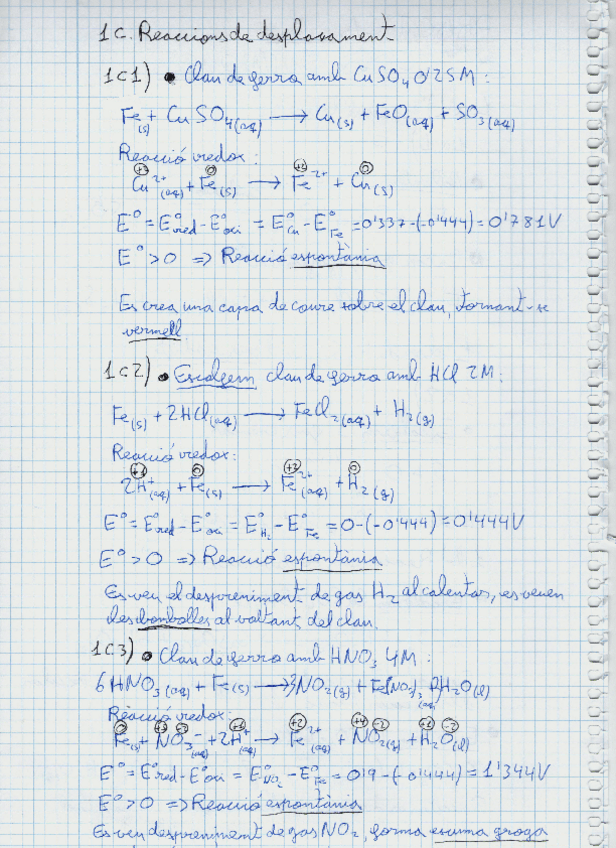 1C. Reaccions de desplaçament
1C1) • Clau de ferro amb CuSO₄ 0'25M:
Fe(s) + CuSO₄(aq) → Cu(s) + FeO(aq) + SO₃(aq)
Reacció redox:
+2 0 +2 0
Cu²⁺(aq) + Fe(s) → Fe²⁺ + Cu(s)
E° = E°red - E°oxi = E°Cu - E°Fe = 0'337-(-0'444) = 0'781V
E° > 0 => Reacció espontània
Es crea una capa de coure sobre el clau, tornant-se
vermell
1C2) • Escalfem clau de ferro amb HCl 2M:
Fe(s) + 2HCl(aq) → FeCl₂(aq) + H₂(g)
Reacció redox:
+1 0 +2 0
2H⁺(aq) + Fe(s) → Fe²⁺(aq) + H₂(g)
E° = E°red - E°oxi = E°H₂ - E°Fe = 0-(-0'444) = 0'444V
E° > 0 => Reacció espontània
Es veu el despreniment de gas H₂ al calentar, es veuen
les bombolles al voltant del clau.
1C3) • Clau de ferro amb HNO₃ 4M:
6HNO₃(aq) + Fe(s) → 3NO₂(g) + Fe(NO₃)₃(aq) 3H₂O(l)
Reacció redox:
0 +5 -2 +1 +2 +4 -2 +1 -2
Fe(s) + NO₃⁻ + 2H⁺(aq) → Fe²⁺(aq) + NO₂(g) + H₂O(l)
E° = E°red - E°oxi = E°NO₂ - E°Fe = 0'9-(-0'444) = 1'344V
E° > 0 => Reacció espontània
Es veu despreniment de gas NO₂, forma escuma groga